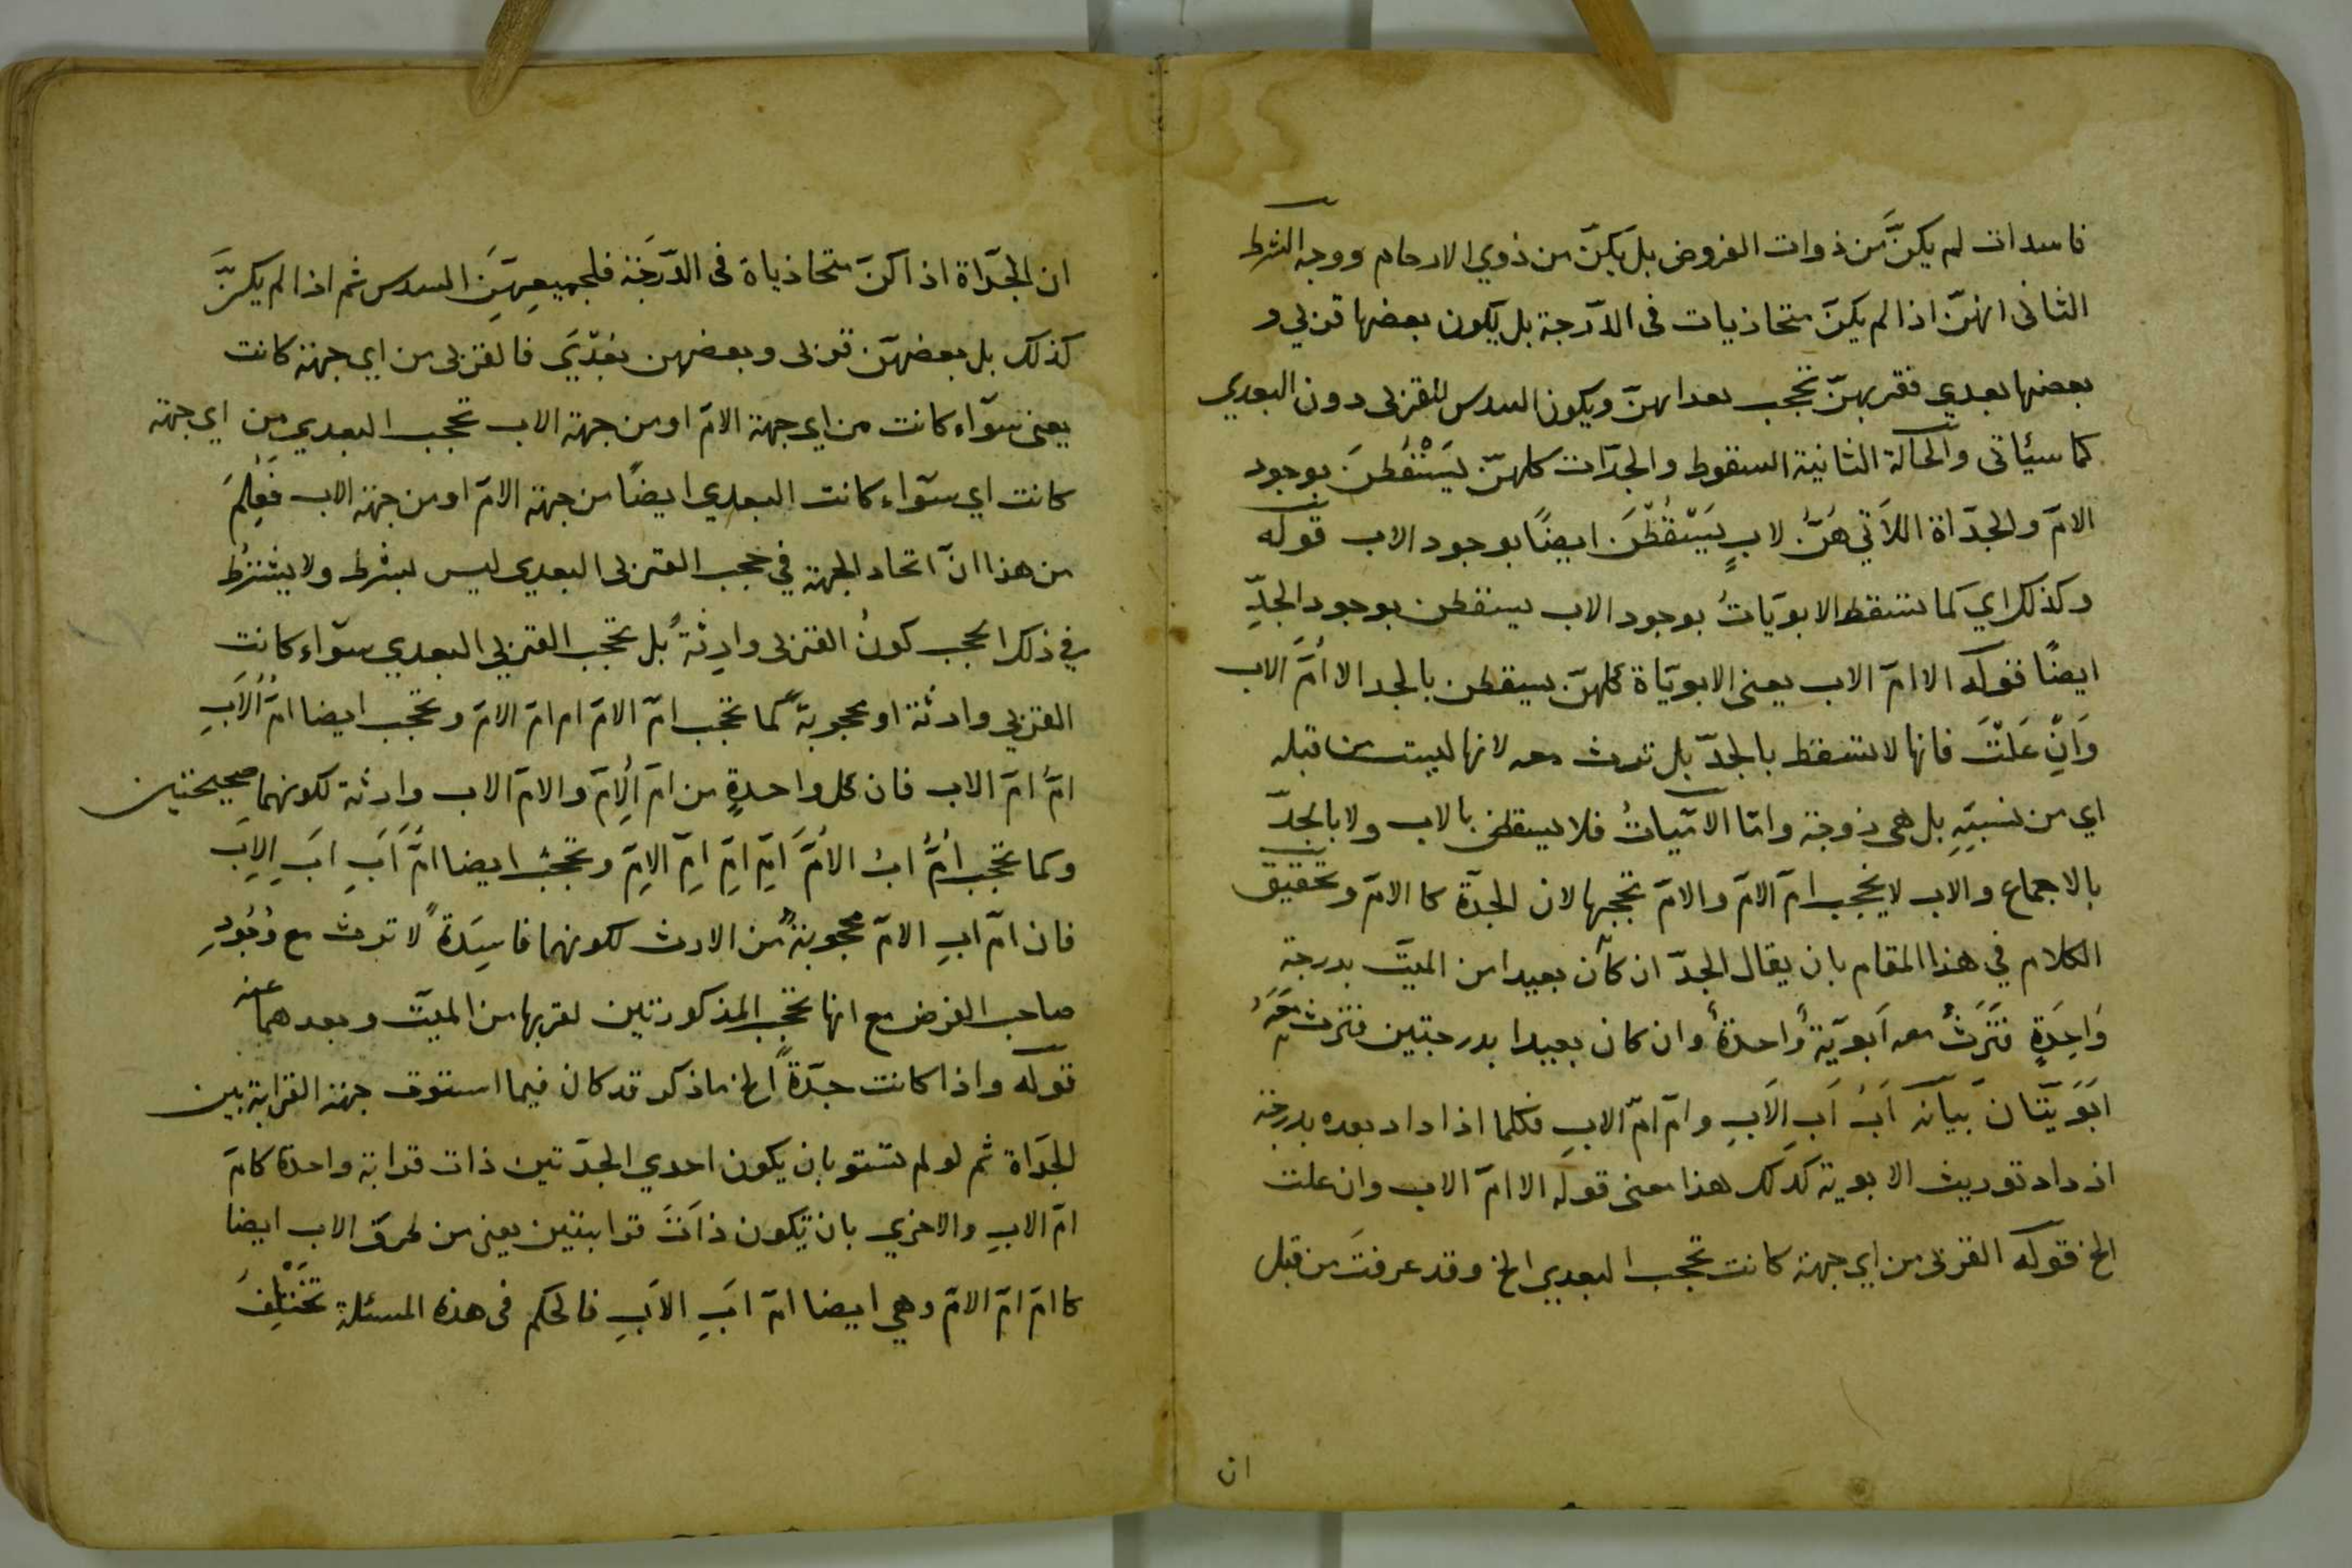 فاسدات لم يكنَّ من ذوات الفروض بل يكنّ من ذوي الارحام ووجه الشرط
الثانى انهنّ اذا لم يكنّ متحاذيات فى الدّرجة بل يكون بعضها قربي و
بعضها بعدي فقربهنّ تحجب بعداهنّ ويكون السدس للقربى دون البعدي
كما سيئاتى والحالة الثانية السقوط والجدّات كلهنّ يَسْقُطنَ بوجود
الامّ والجدّاة اللاَتي هُنَّ لابٍ يَسْقُطْنَ ايضًا بوجود الاب قوله
وكذلك اي كما تسقط الابويّاتُ بوجود الاب يسقطن بوجود الجدِّ
ايضًا قوله الا امّ الاب يعنى الابويّاة كلهنّ يسقطن بالجد الا اُمَّ الاب
وَاِنْ عَلَتْ فانها لا تسقط بالجدّ بل ترث معه لانها ليست من قبله
اي من نسبَتِهِ بل هى زوجته وامّا الامّيّاتُ فلا يسقطن بالاب ولا بالجدّ
بالاجماع والاب لا يحجب امّ الامّ والامّ تحجبها لان الجدّة كا الامّ وتحقيق
الكلام في هذا المقام بان يقال الجدّ ان كان بعيدا من الميّت بدرجةٍ
وَاحِدَةٍ فتَرَثُ معه اَبويّةٌ واحدةٌ وان كان بعيدا بدرجتين فترث معَهُ
اَبَوَيَّتَان بَيانه اَبُ اَبِ الاَبِ وامّ امّ الابِ فكلما اذا داد بعده بدرجة
اذ داد توريث الابوية كذلك هذا معنى قوله الا امّ الاب وان علت
الخ قوله القربى من اي جهة كانت تحجب البعدي الخ وقد عرفتَ من قبل
ان
ان الجدّاة اذا كنّ متحاذياة فى الدّرجَة فلجميعِهِنَّ السدس ثم اذا لم يكنَّ
كذلك بل بعضهنّ قربى وبعضهن بعْدَي فالقربى من اي جهة كانت
يعنى سوّاء كانت من اي جهة الامّ او من جهة الاب تحجب البعدي من اي جهة
كانت اي سوّاء كانت البعدي ايضًا من جهة الامّ او من جهة الاب فعُلِمَ
من هذا انّ اتحاد الجهة في حجب القربى البعدي ليس بشرط ولا يشترُط
في ذلك الحجب كونُ القربى وارِثةً بل تحجب القربي البعدي سوّاء كانت
القربي وارثة او محجوبة كما تحجب امّ الامّ ام امّ الامّ وتحجب ايضا امُّ الاَبِ
امَّ امّ الاب فان كل واحدةٍ من امّ الاِمّ والامّ الاب وارثة لكونهما صحيحتين
وكما تحجب اُمُّ ابْ الاُمَّ اَمِّ اِمِّ اِمّ الاِمّ وتحجبُ ايضا امَّ اَبِ اَبِ الاِبَ
فان امّ ابِ الامّ محجوبةٌ من الارث لكونهما فاسِدَةً لا ترث مع وُجُودِ
صاحب الفرض مع انها تحجب المذكورتين لقربها من الميّت وبعدهما عنه
قوله واذا كانت جدّةً الخ ما ذكر قد كان فيما استوف جهة القرابة بين
الجدّاة ثم لو لم تستو بان يكون احدي الجدّتين ذات قرابة واحدة كامّ
امّ الابِ والاخري بان تكون ذاَتَ قرابتين يعنى من طرق الاب ايضا
كا امّ امّ الامّ وهي ايضا امّ اَبِ الاَبِ فالحكم فى هذه المسئلة تَختْلِفُ